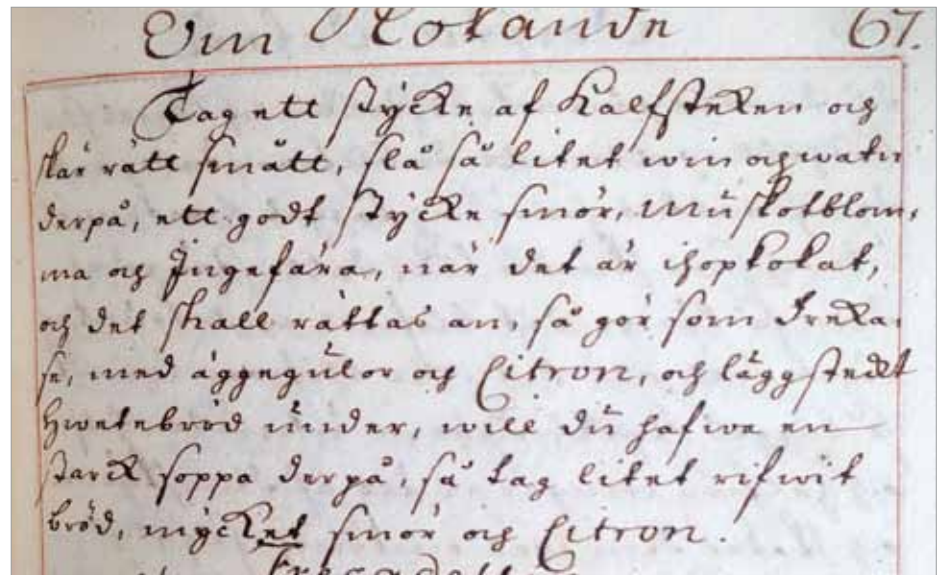 Om Kokande 67.
Tag ett stycke af Kalfsteken och
skär rätt smått, slå så litet win och watn
derpå, ett godt stycke smör, Muskotblom,
ma och Jngefära, när det är ihopkokat,
och det skall rättas an, så gör som freka,
se, med äggegulor och Citron, och lägg stedt
hwetebröd under, will du hafwa en
starck soppa derpå, så tag litet rifwit
bröd, mycket smör och Citron.